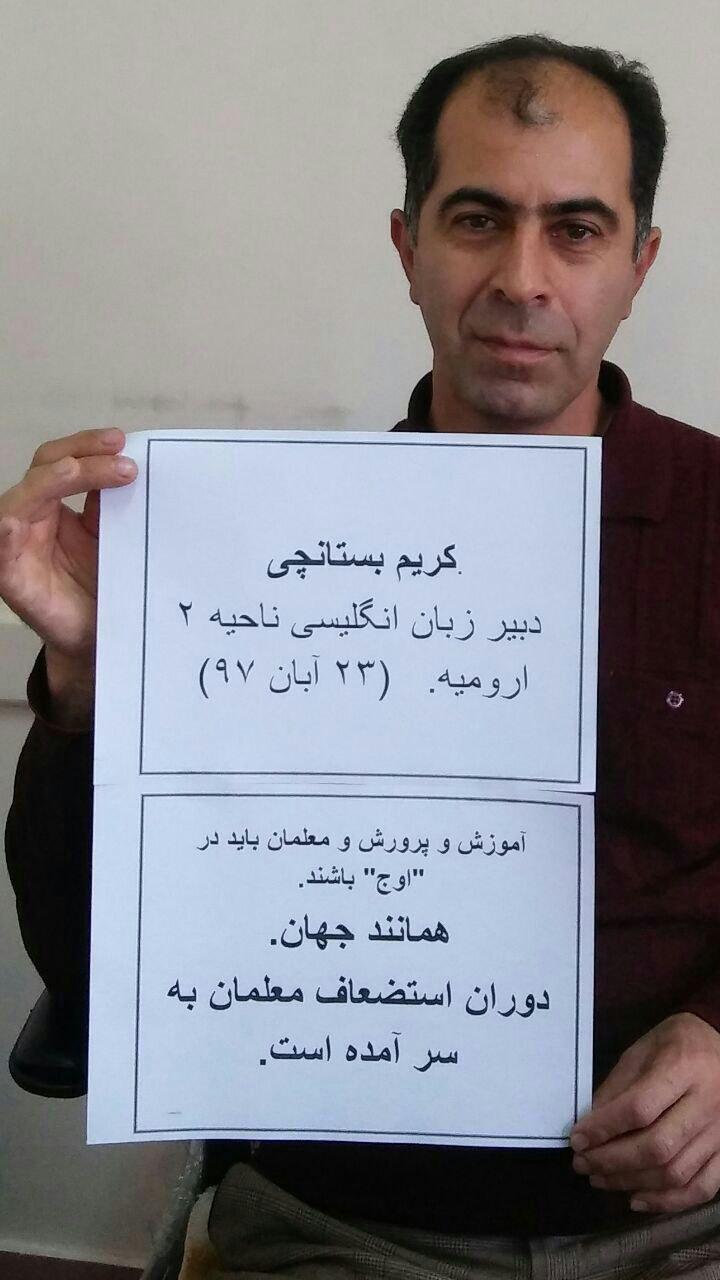 کریم بستانچی
دبیر زبان انگلیسی ناحیه ۲
ارومیه. (۲۳ آبان ۹۷)
آموزش و پرورش و معلمان باید در
"اوج" باشند.
همانند جهان.
دوران استضعاف معلمان به
سر آمده است.